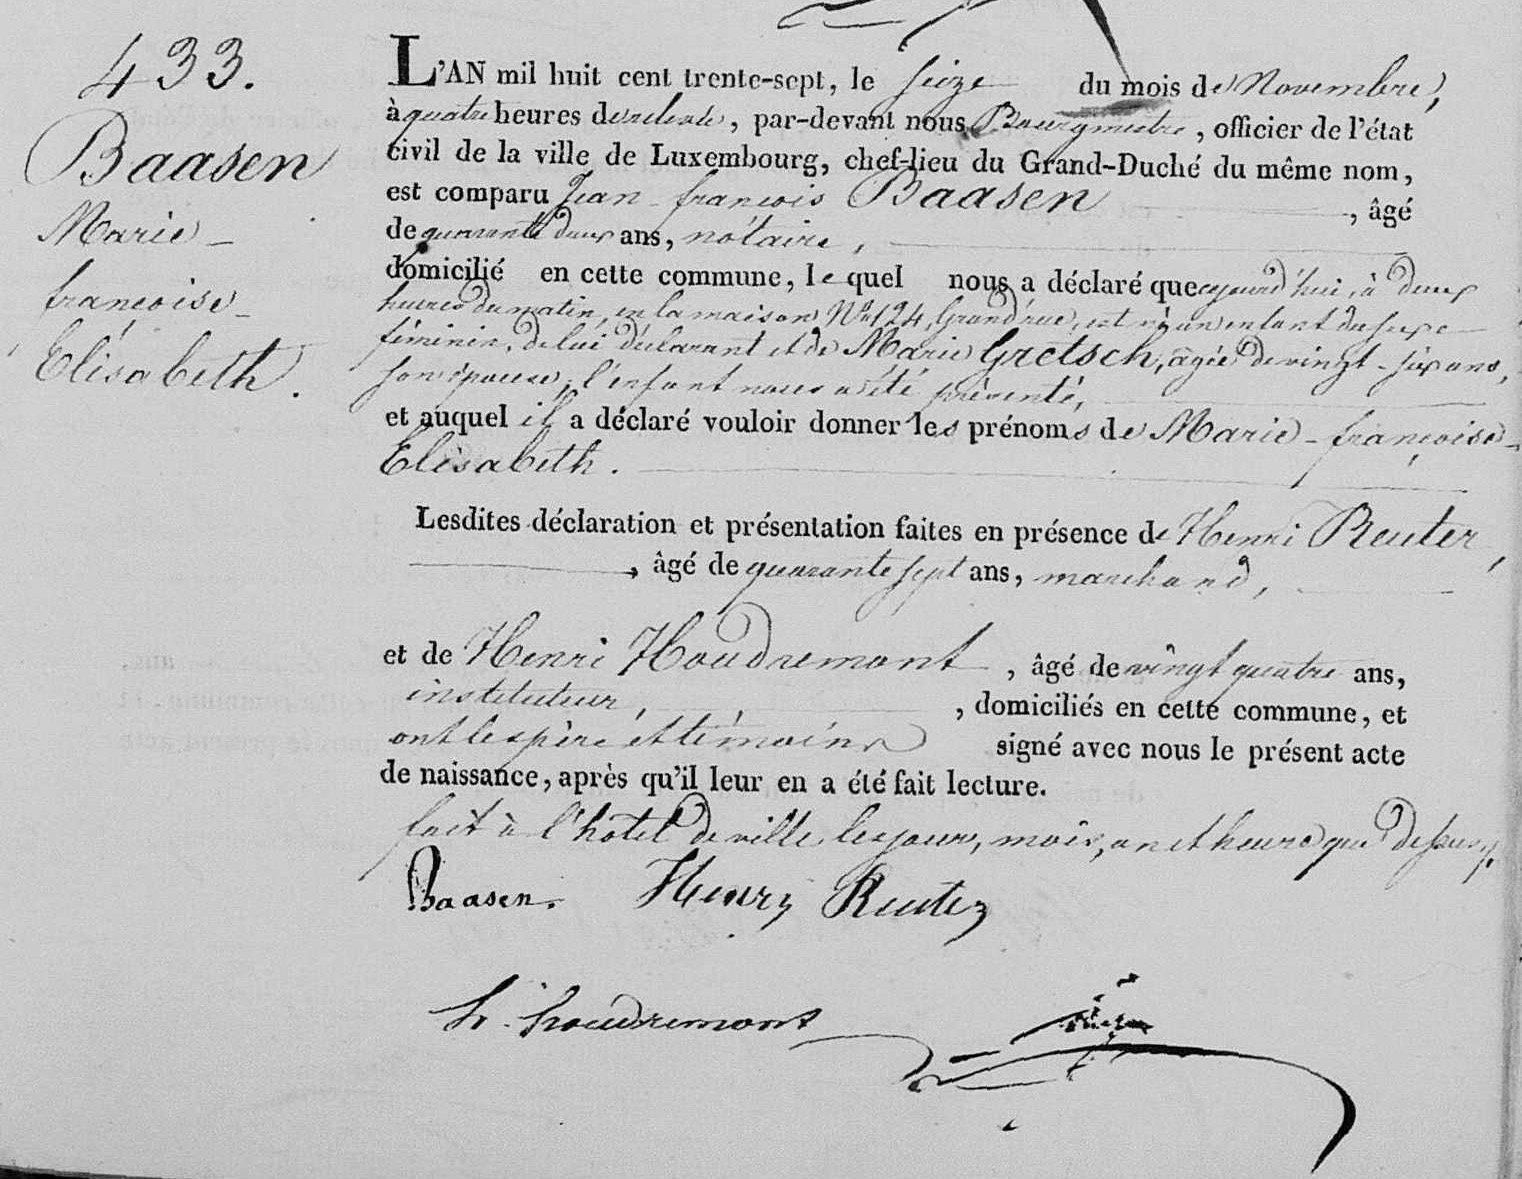 433.
Baasen
Marie-
françoise-
Elisabeth.
L'AN mil huit cent trente-sept, le seize du mois de Novembre,
à quatre heures de relevée, par-devant nous Bourgmestre, officier de l'état
civil de la ville de Luxembourg, chef-lieu du Grand-Duché du même nom,
est comparu Jean-françois Baasen, âgé
de quarante deux ans, nótaire,
domicilié en cette commune, lequel nous a déclaré que aujourd'hui, à deux
heures du matin, en la maison No 124, Grand'rue, est né un enfant du sexe
féminin, de lui déclarant et de Marie Gretsch, âgée de vingt-six ans,
son épouse, l'enfant nous a été présenté,
et auquel il a déclaré vouloir donner les prénoms de Marie-françoise-
Elisabeth.
Lesdites déclaration et présentation faites en présence de Henri Reuter,
, âgé de quarante sept ans, marchand,
et de Henri Houdremont, âgé de vingt quatre ans,
instituteur, , domiciliés en cette commune, et
ont les père et témoins signé avec nous le présent acte
de naissance, après qu'il leur en a été fait lecture.
fait à l'hôtel de ville les jour, mois, an et heure que dessus.
Baasen. Henry Reuter
h. houdremont